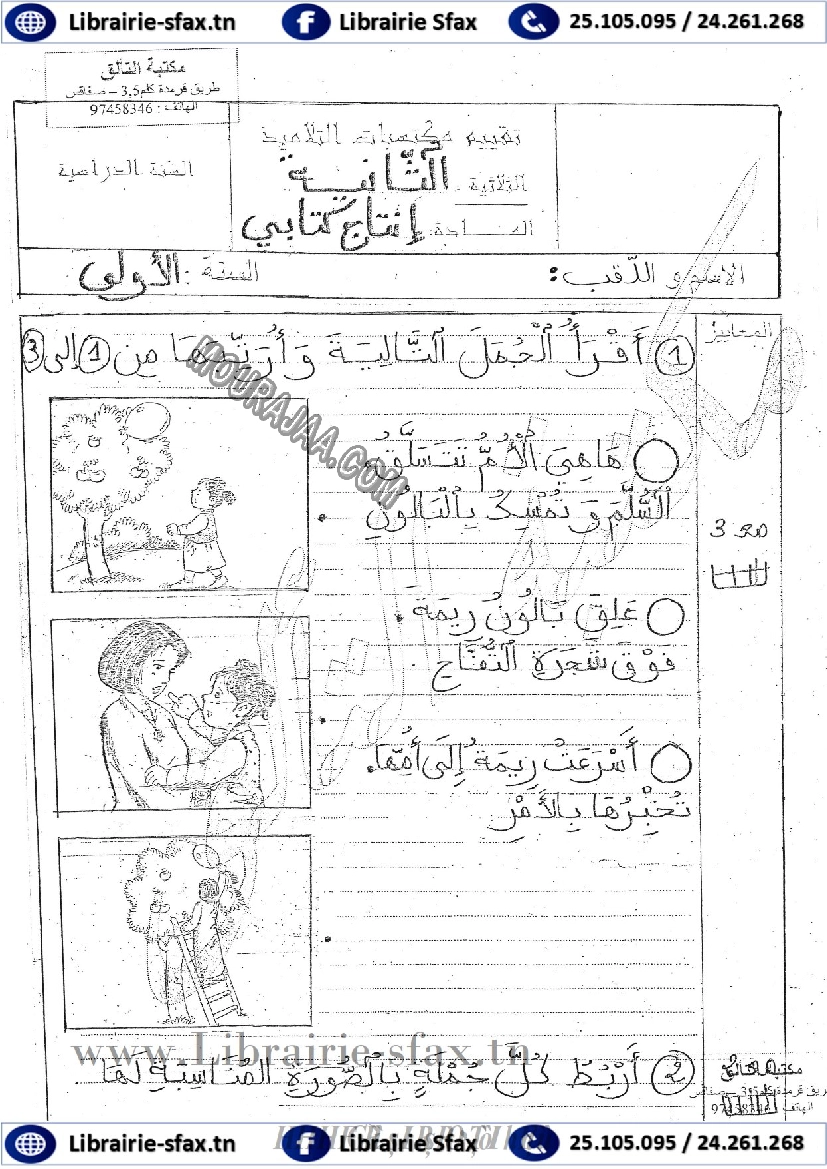 Librairie-sfax.tn Librairie Sfax 25.105.095 / 24.261.268
مكتبة التألق
طريق قرمدة كلم3,5 – صفاقس
الهاتف : 97458346
تقييم مكتسبات التلاميذ
الثلاثية : الثَّانية
المادة: إنتاج كتابي
السنة الدراسية
الاسم و اللقب:
السنة : الأولى
المعايير
① أَقْرَأُ ٱلْجُمَلَ ٱلتَّالِيَةَ وَ أُرَتِّبُهَا مِن ① إلى ③
MOURAJAA.COM
هَاهِيَ ٱلْأُمُّ تَتَسَلَّقُ
ٱلسُّلَّمَ وَ تُمْسِكُ بِٱلْبَالُونِ .
مع 3
عَلِقَ بَالُونُ رِيمَةَ .
فَوْقَ شَجَرَةِ ٱلتُّفَّاحِ .
أَسْرَعَتْ رِيمَةُ إِلَى أُمِّهَا.
تُخْبِرُهَا بِالأَمْرِ
www.Librairie-sfax.tn
② أَرْبُطُ كُلَّ جُمْلَةٍ بِٱلصُّورَةِ المُنَاسِبَةِ لَهَا ..
مكتبة التألق
طريق قرمدة كلم3,5 – صفاقس
الهاتف : 97458346
Librairie-sfax.tn Librairie Sfax 25.105.095 / 24.261.268